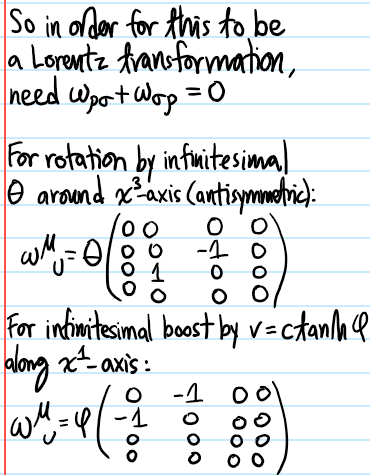 So in order for this to be
a Lorentz transformation,
need ωρσ + ωσρ = 0
For rotation by infinitesimal
θ around x³-axis (antisymmetric):
ω^μ_υ = θ (0 0 0 0
0 0 -1 0
0 1 0 0
0 0 0 0)
For infinitesimal boost by v = c tanh φ
along x¹-axis:
ω^μ_υ = φ (0 -1 0 0
-1 0 0 0
0 0 0 0
0 0 0 0)